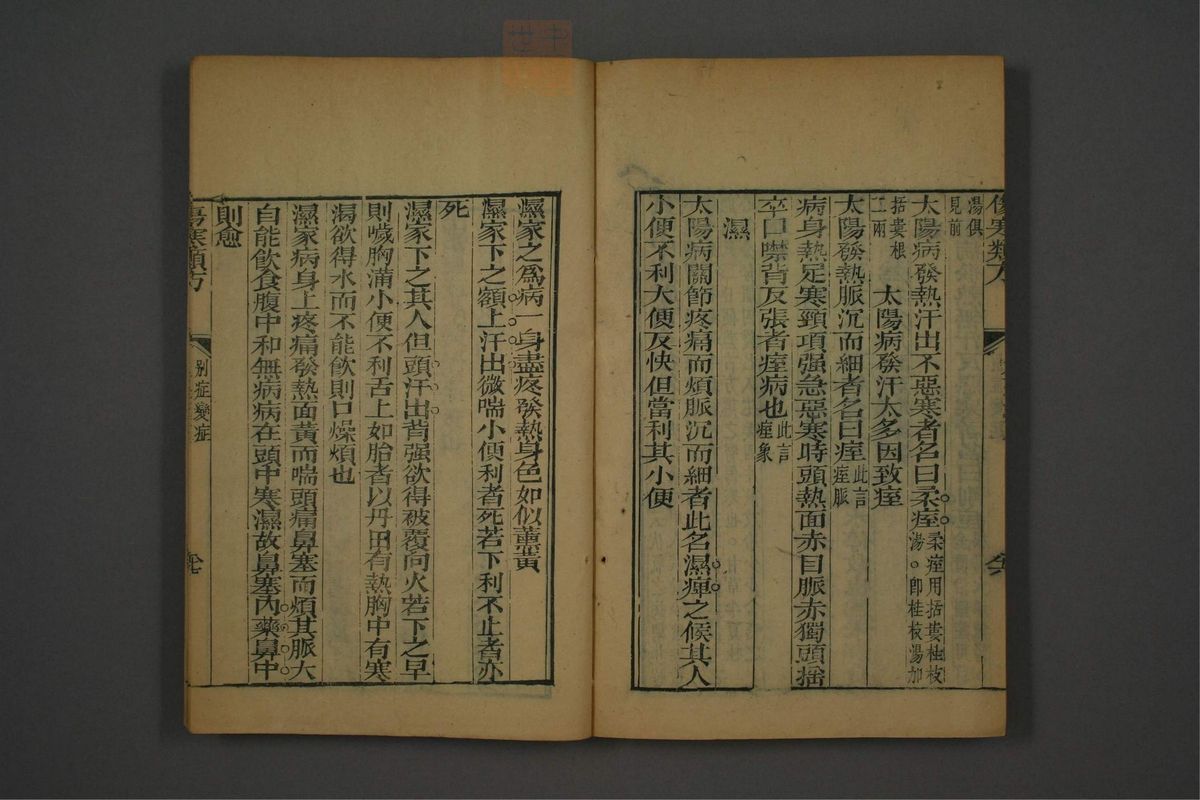 傷寒類方
湯俱
見前
太陽病發熱汗出不惡寒者名曰柔痓柔痓用括蔞桂枝
湯。卽桂枝湯加
括蔞根
二兩
太陽病發汗太多因致痓
太陽發熱脈沉而細者名曰痓此言
痓脈
病身熱足寒頸項强急惡寒時頭熱面赤目脈赤獨頭搖
卒口噤背反張者痓病也此言
痓象
濕
太陽病關節疼痛而煩脈沉而細者此名濕痺之候其人
小便不利大便反快但當利其小便
濕家之爲病一身盡疼發熱身色如似薰黃
濕家下之額上汗出微喘小便利者死若下利不止者亦
死
濕家下之其人但頭汗出背强欲得被覆向火若下之早
則噦胸滿小便不利舌上如胎者以丹田有熱胸中有寒
渴欲得水而不能飮則口燥煩也
濕家病身上疼痛發熱面黃而喘頭痛鼻塞而煩其脈大
自能飮食腹中和無病病在頭中寒濕故鼻塞內藥鼻中
則愈
傷寒類方
別症變症